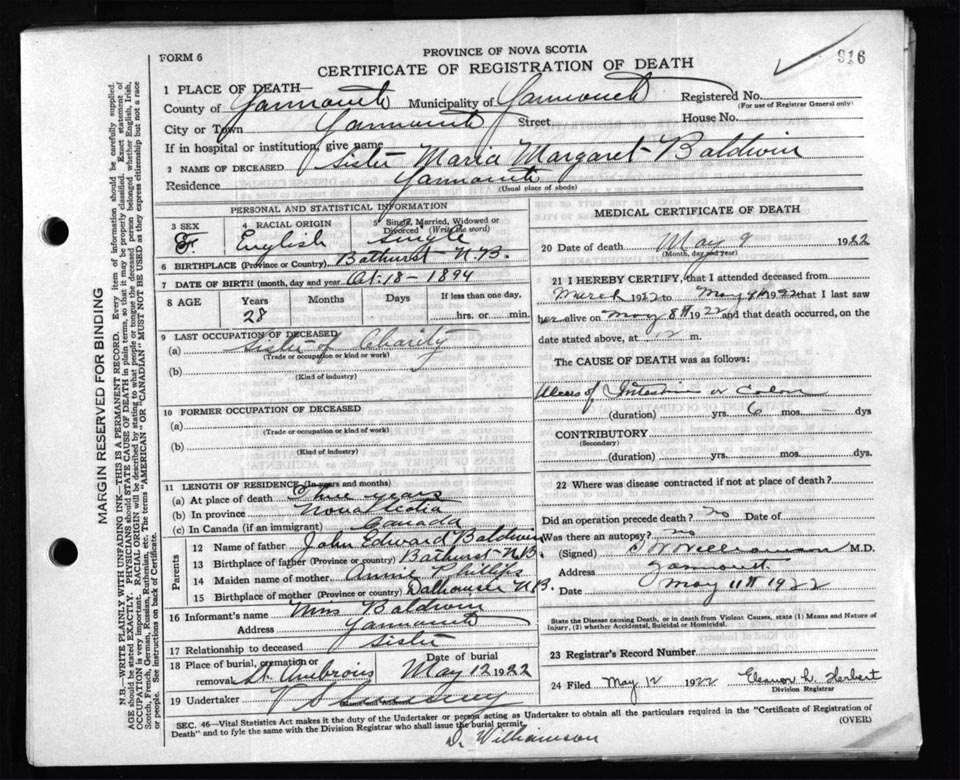 916
FORM 6
PROVINCE OF NOVA SCOTIA
CERTIFICATE OF REGISTRATION OF DEATH
1 PLACE OF DEATH—
County of Yarmouth Municipality of Yarmouth Registered No.
(For use of Registrar General only)
City or Town Yarmouth Street House No.
If in hospital or institution, give name
2 NAME OF DECEASED Sister Maria Margaret Baldwin
Residence Yarmouth
(Usual place of abode)
PERSONAL AND STATISTICAL INFORMATION
3 SEX 4 RACIAL ORIGIN 5 Single, Married, Widowed or Divorced (Write the word)
F. English Single
6 BIRTHPLACE (Province or Country) Bathurst N.B.
7 DATE OF BIRTH (month, day and year) Oct. 18 - 1894
8 AGE Years Months Days If less than one day,
28 hrs. or min.
9 LAST OCCUPATION OF DECEASED
(a) Sister of Charity
(Trade or occupation or kind of work)
(b)
(Kind of industry)
10 FORMER OCCUPATION OF DECEASED
(a)
(Trade or occupation or kind of work)
(b)
(Kind of industry)
11 LENGTH OF RESIDENCE (in years and months)
(a) At place of death Three years
(b) In province Nova Scotia
(c) In Canada (if an immigrant) Canada
Parents
12 Name of father John Edward Baldwin
13 Birthplace of father (Province or Country) Bathurst N.B.
14 Maiden name of mother Annie Phillips
15 Birthplace of mother (Province or country) Dalhousie N.B.
16 Informant's name Mrs Baldwin
Address Yarmouth
17 Relationship to deceased Sister
18 Place of burial, cremation or removal St. Ambrois Date of burial May 12 1922
19 Undertaker
(Name and Address)
MEDICAL CERTIFICATE OF DEATH
20 Date of death May 9 1922
(Month, day and year)
21 I HEREBY CERTIFY, that I attended deceased from
March 1922 to May 9th 1922 that I last saw
her alive on May 8th 1922 and that death occurred, on the
date stated above, at 12 m.
The CAUSE OF DEATH was as follows:
Ulcers of Intestine or Colon
(duration) yrs. 6 mos. — dys
CONTRIBUTORY
(Secondary)
(duration) yrs. mos. dys.
22 Where was disease contracted if not at place of death?
Did an operation precede death? no Date of
Was there an autopsy? no
(Signed) Williamson M.D.
Address Yarmouth
Date May 11th 1922
State the Disease causing Death, or in death from Violent Causes, state (1) Means and Nature of Injury, (2) whether Accidental, Suicidal or Homicidal.
23 Registrar's Record Number
24 Filed May 12 1922 Eleanor L. Herbert
Division Registrar
SEC. 46—Vital Statistics Act makes it the duty of the Undertaker or person acting as Undertaker to obtain all the particulars required in the "Certificate of Registration of
Death" and to fyle the same with the Division Registrar who shall issue the burial permit. (OVER)
D. Williamson
MARGIN RESERVED FOR BINDING
N.B.—WRITE PLAINLY WITH UNFADING INK—THIS IS A PERMANENT RECORD. Every item of information should be carefully supplied.
AGE should be stated EXACTLY. PHYSICIANS should STATE CAUSE OF DEATH in plain terms, so that it may be properly classified. Exact statement of
OCCUPATION is very important. RACIAL ORIGIN will be described by stating to what people or tongue the deceased person belonged whether English, Irish,
Scotch, French, German, Russian, Ruthenian, etc. The terms "AMERICAN" OR "CANADIAN" MUST NOT BE USED as they express citizenship but not a race
or people. See instructions on back of Certificate.